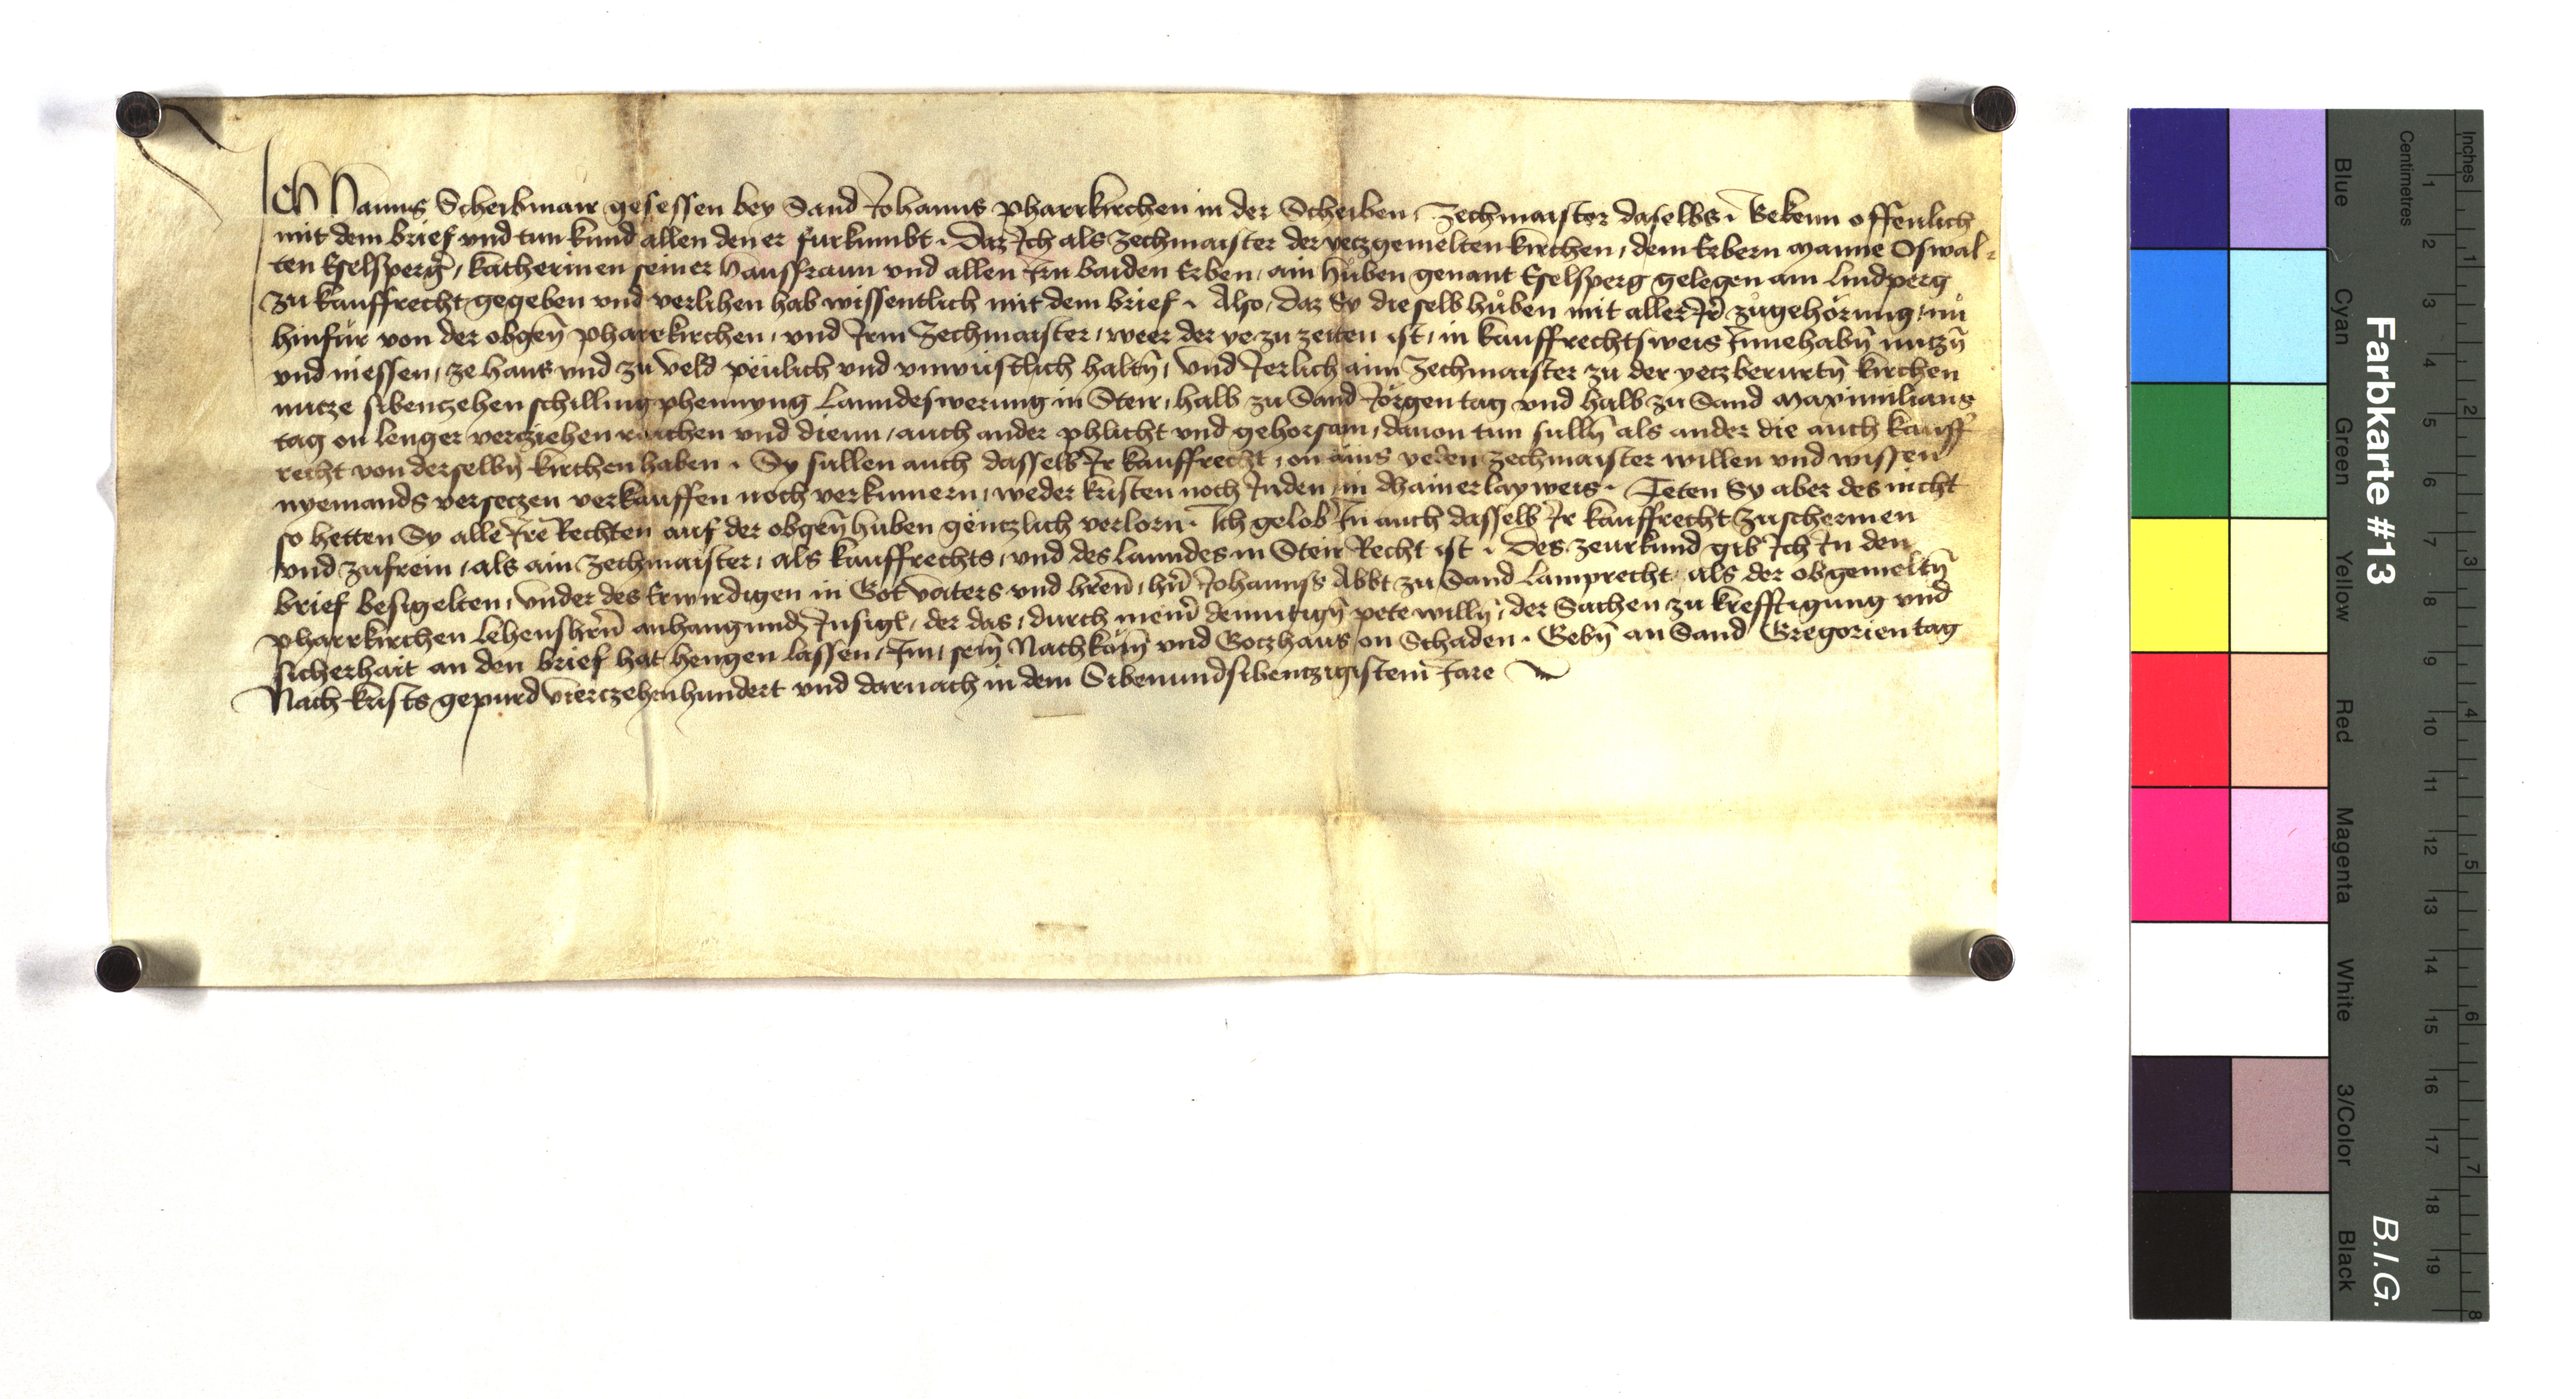 Ich Hanns Scheibmair gesessen bey Sand Johanns pharrkirchen in der Scheiben, Zechmaister daselbs, Bekenn offenlich
mit dem brief vnd tun kund allen den er furkumbt. Daz Ich als zechmaister der yeczgemelten kirchen, dem Erbern manne Oswal-
ten Eselsperg̃, katherinen seiner Hausfraun vnd allen Irn baiden Erben, ain hůben genant Eselsperg gelegen am lindperg
zu kauffrecht gegeben vnd verlihen hab wissentlich mit dem brief. Also, daz Sy dieselb hůben mit aller Ir̃ zůgehörung, nů
hinfür von der obgeñ pharrkirchen, vnd Irm Zechmaister, weer der ye zu zeiten ist, in kauffrechtsweis Innehabñ nutzñ
vnd niessen, ze haus vnd zu veld peulich vnd vnwustlich haltñ, vnd Ierlich aim Zechmaister zu der yeczberurtñ kirchen
nutze sibenczehen schilling phennyng Lanndeswerung in Steir, halb zu Sand Jörgen tag vnd halb zu Sand Maximilians
tag on lenger verziehen raichen vnd dienn, auch ander phlicht vnd gehorsam, dauon tun sullñ als ander die auch kauff
recht von derselbñ kirchen haben. Sy sullen auch dasselb Ir kauffrecht, on ains yeden zechmaister willen vnd wissen
nyemands verseczen verkauffen noch verkumern, weder kristen noch Juden, in dhainerlay weis. Teten Sy aber des nicht
so hetten Sy alle Ire Rechten auf der obgeñ huben genczlich verlorn. Ich gelob In auch dasselb Ir kauffrecht zuschermen
vnd zufrein, als ain zechmaister, als kauffrechts, vnd des lanndes in Steir Recht ist. Des zeurkund gib Ich In den
brief besigelten, vnder des Erwirdigen in Got vaters vnd hreñ, hr̃n Johannss Abbt zu Sand lamprecht, als der obgemeltñ
pharrkirchen lehenshr̃n anhangundn Insigl, der das, durch meiñ demutigñ pete willñ, der Sachen zu krefftigung vnd
sicherhait an den brief hat hengen lassen, Im, seiñ Nachkom̃ vnd Goczhaus, on Schaden. Gebñ an Sand Gregorien tag
Nach krists gepurd vierczehenhundert vnd darnach in dem Sibenundsibenczigistem Jare
Farbkarte #13
B.I.G.
Inches
Centimetres
1 2 3 4 5 6 7 8
1 2 3 4 5 6 7 8 9 10 11 12 13 14 15 16 17 18 19
Blue
Cyan
Green
Yellow
Red
Magenta
White
3/Color
Black